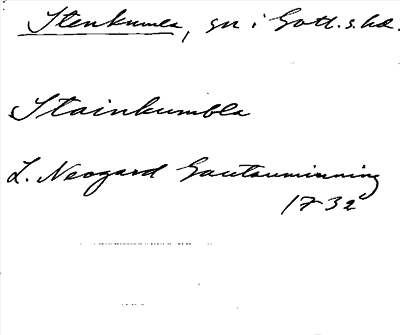 Stenkumla, sn i Gotl. s. hd.
Stainkumbla
L. Neogard Gautauminning
1732